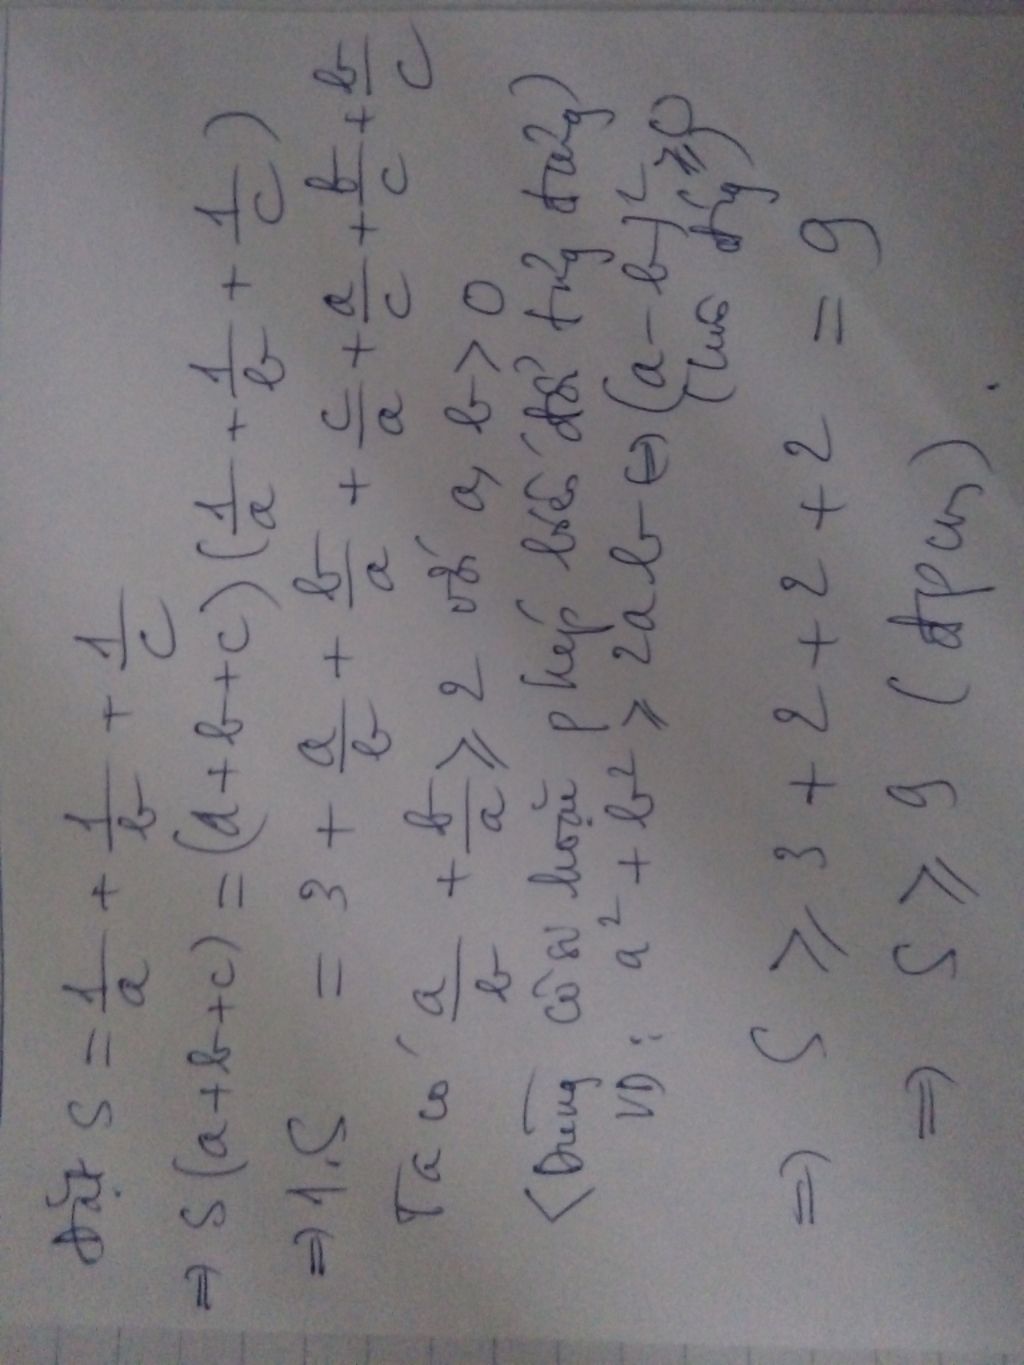 Đặt S = 1/a + 1/b + 1/c
⇒ S(a+b+c) = (a+b+c)(1/a + 1/b + 1/c)
⇒ 1.S = 3 + a/b + b/a + c/a + a/c + b/c + b/c
Ta có a/b + b/a ⩾ 2 với a, b > 0
<Dùng côsi hoặc phép biến đổi tương đương)
VD: a² + b² ⩾ 2ab ⇔ (a-b)² ⩾ 0
(luôn đúng)
⇒ S ⩾ 3 + 2 + 2 + 2 = 9
⇒ S ⩾ 9 (đpcm).